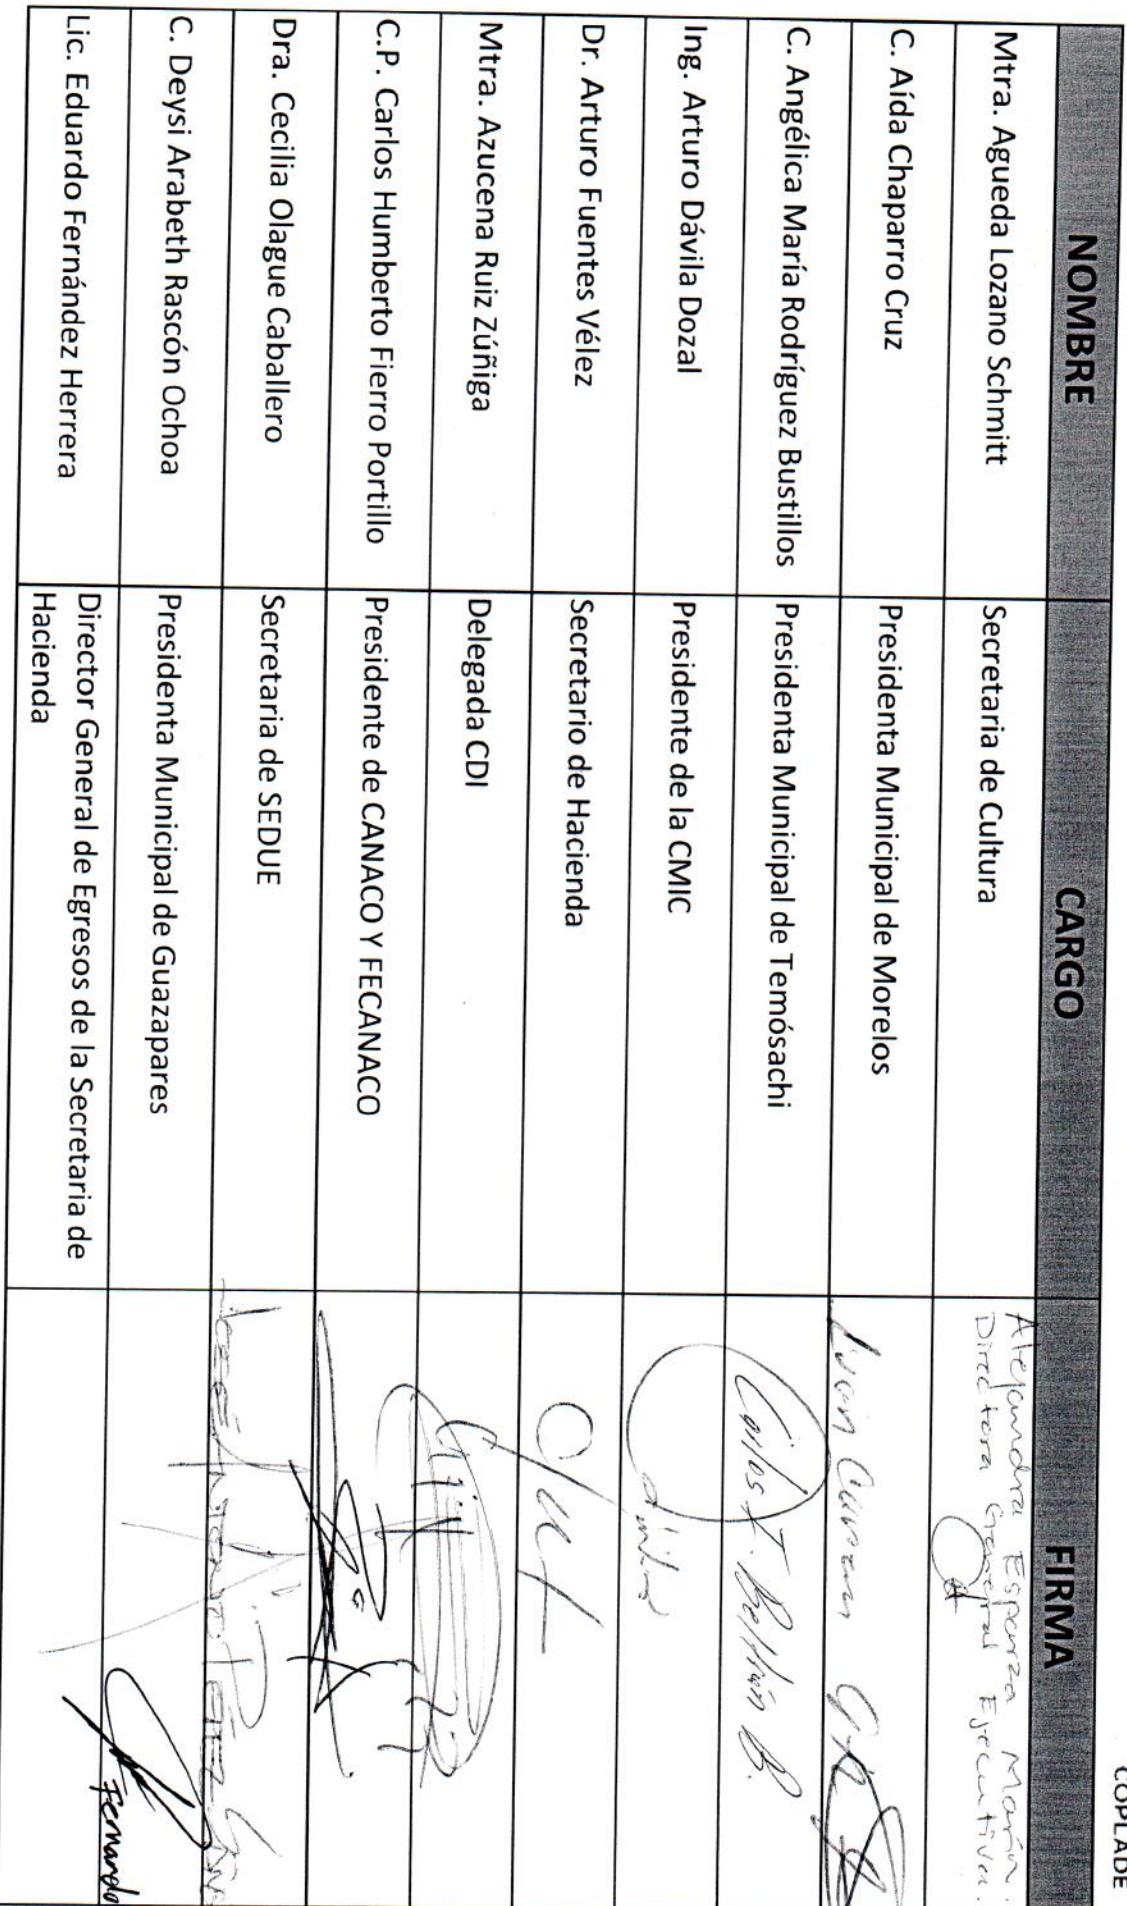 COPLADE
NOMBRE CARGO FIRMA
Mtra. Agueda Lozano Schmitt Secretaria de Cultura Alejandra Esparza Marín.
Directora General Ejecutiva.
C. Aída Chaparro Cruz Presidenta Municipal de Morelos
C. Angélica María Rodríguez Bustillos Presidenta Municipal de Temósachi Carlos I. Beltrán B.
Ing. Arturo Dávila Dozal Presidente de la CMIC
Dr. Arturo Fuentes Vélez Secretario de Hacienda
Mtra. Azucena Ruiz Zúñiga Delegada CDI
C.P. Carlos Humberto Fierro Portillo Presidente de CANACO Y FECANACO
Dra. Cecilia Olague Caballero Secretaria de SEDUE
C. Deysi Arabeth Rascón Ochoa Presidenta Municipal de Guazapares
Lic. Eduardo Fernández Herrera Director General de Egresos de la Secretaria de
Hacienda
Fernando